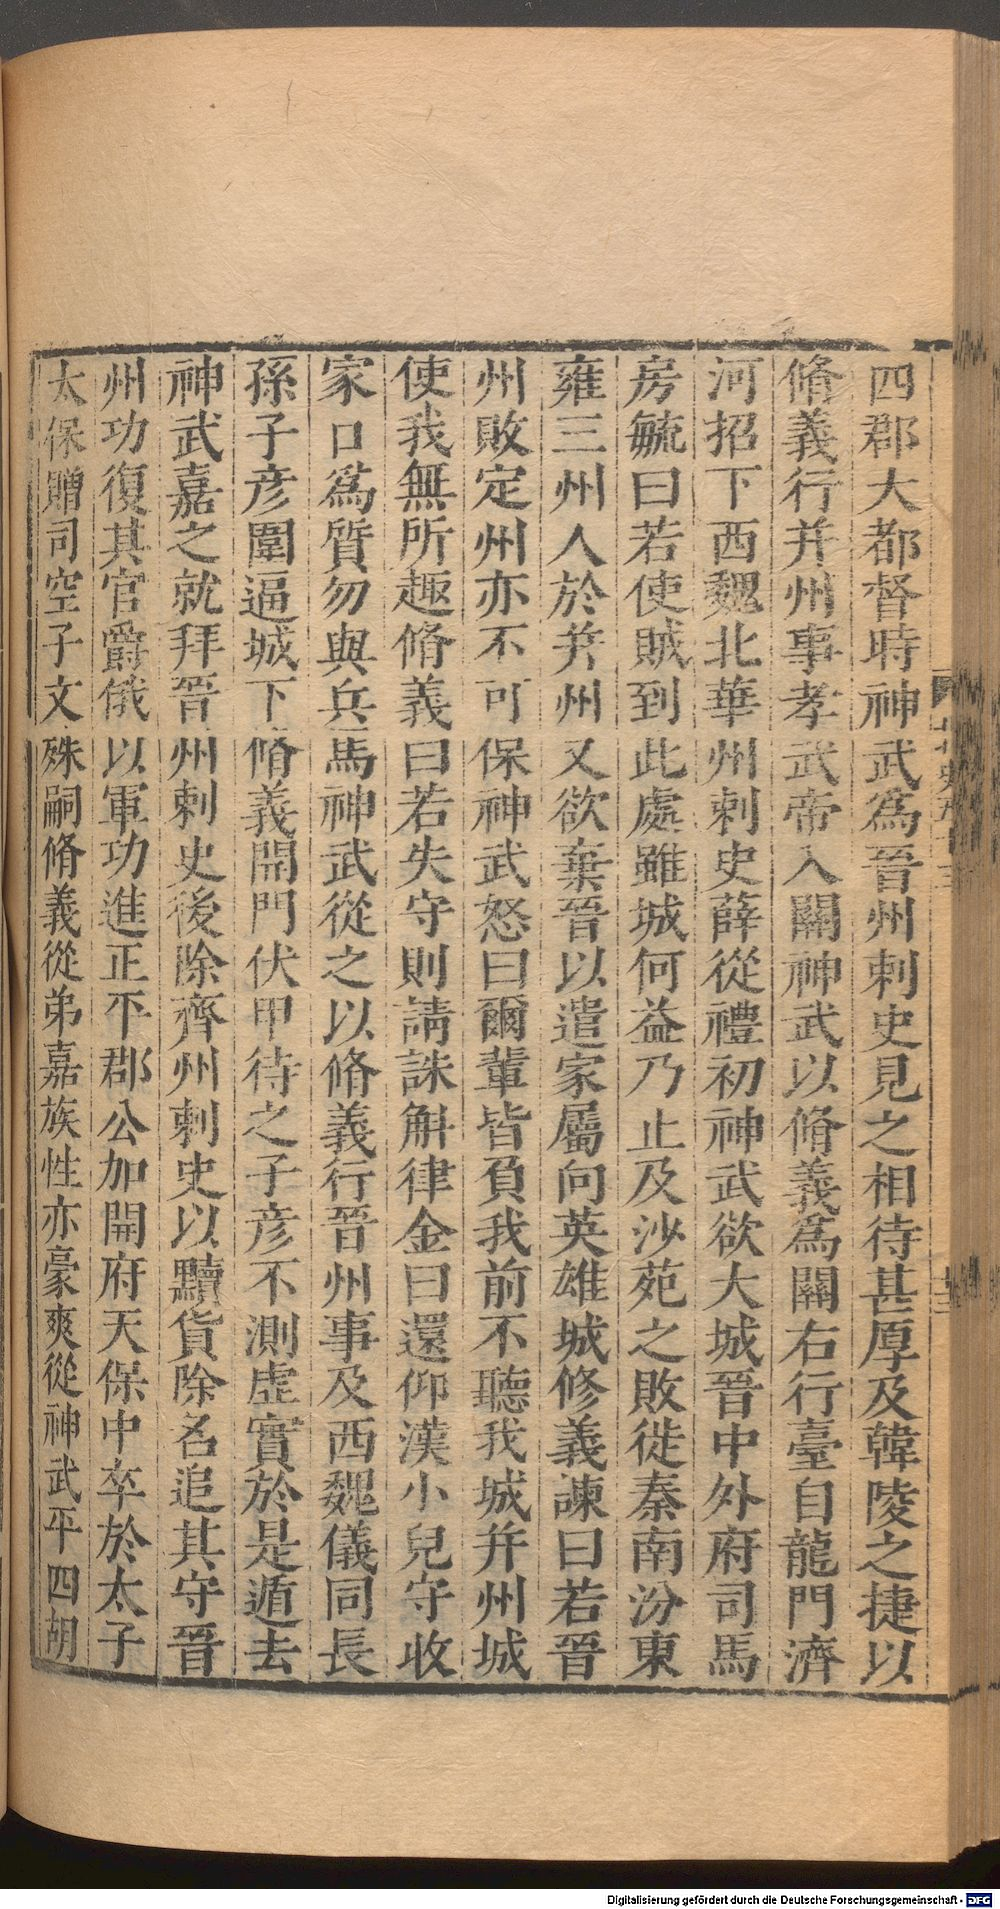 四郡大都督時神武爲晉州刺史見之相待甚厚及韓陵之捷以
脩義行并州事孝武帝入關神武以脩義爲關右行臺自龍門濟
河招下西魏北華州刺史薛從禮初神武欲大城晉中外府司馬
房毓曰若使賊到此處雖城何益乃止及沙苑之敗徙秦南汾東
雍三州人於并州又欲棄晉以遣家屬向英雄城修義諫曰若晉
州敗定州亦不可保神武怒曰爾輩皆負我前不聽我城并州城
使我無所趣脩義曰若失守則請誅斛律金曰還仰漢小兒守收
家口爲質勿與兵馬神武從之以脩義行晉州事及西魏儀同長
孫子彦圍逼城下脩義開門伏甲待之子彦不測虛實於是遁去
神武嘉之就拜晉州刺史後除齊州刺史以黷貨除名追其守晉
州功復其官爵俄以軍功進正平郡公加開府天保中卒於太子
太保贈司空子文殊嗣脩義從弟嘉族性亦豪爽從神武平四胡
Digitalisierung gefördert durch die Deutsche Forschungsgemeinschaft - DFG